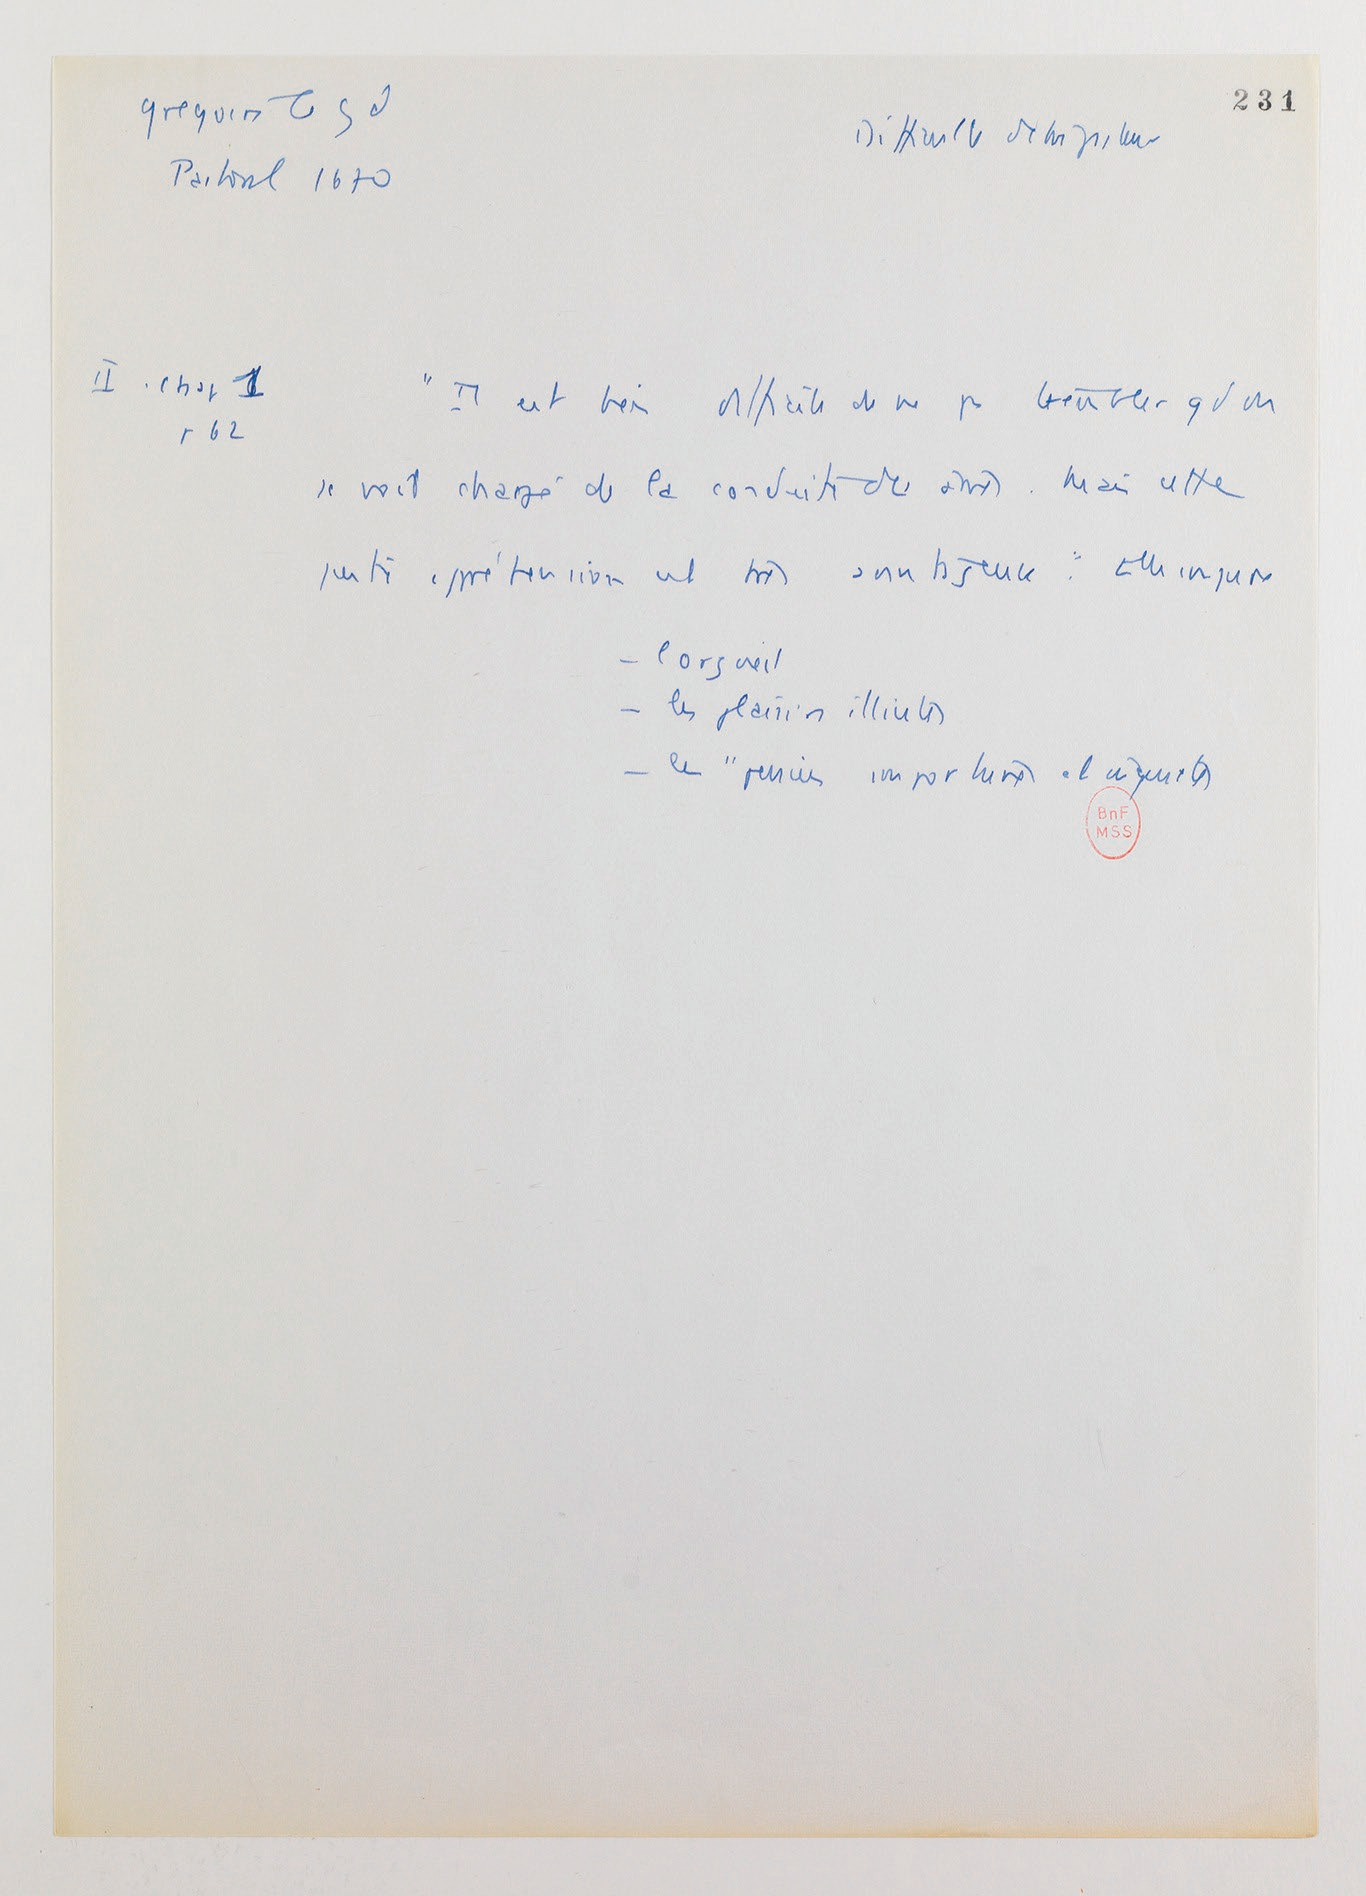 231
Grégoire le gd
Pastoral 1670
Difficulté
II . chap 1
p 62
" Il est bien difficile de ne pas trembler qd on
se voit chargé de la conduite des âmes. Mais cette
juste appréhension est très avantageuse ": Elle
- l'orgueil
- les plaisirs illicites
- les " pensées importunes et
BnF
MSS